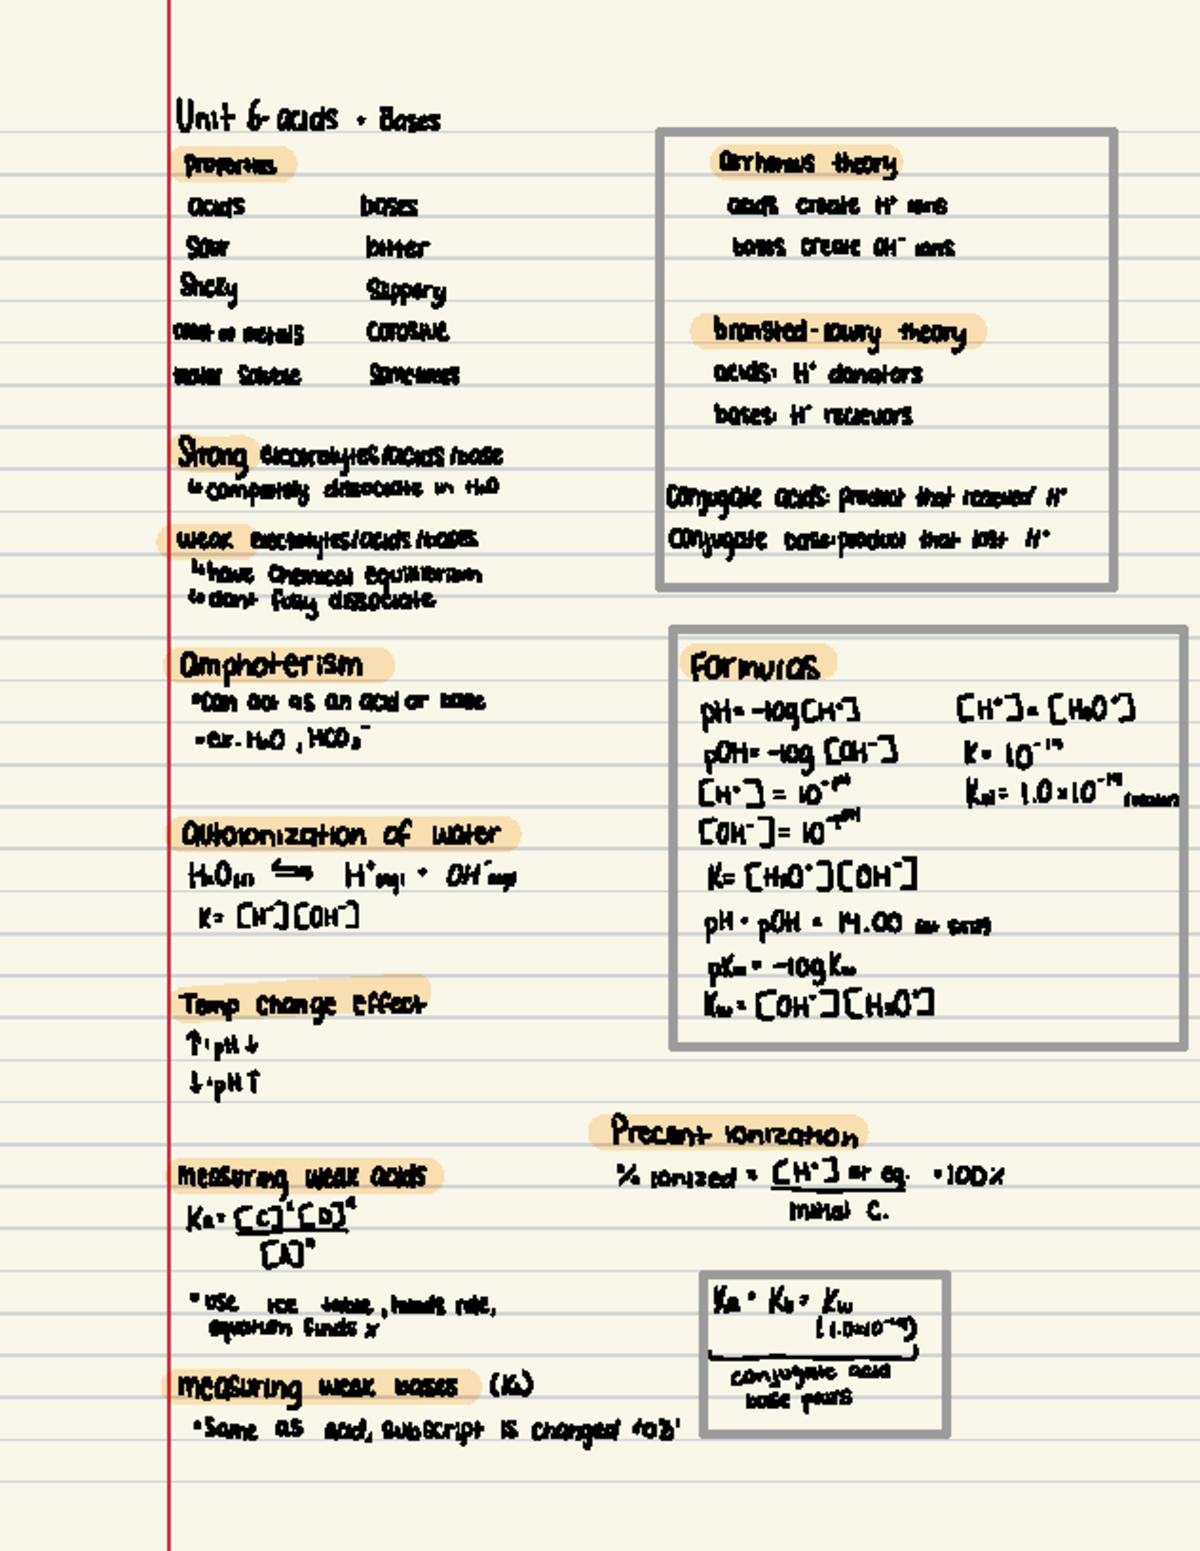 Unit 6- acids + Bases
Properties
acids bases
Sour bitter
Slippery
metals corosive
water soluble Sometimes
Strong electrolytes/acids/base
↳ completely dissociate in H₂O
weak electrolytes/acids/bases
↳ have chemical equilibrium
↳ dont fully dissociate
amphoterism
•can act as an acid or base
-ex. H₂O , HCO₃⁻
Autoionization of water
H₂O(l) ⇌ H⁺(aq) + OH⁻(aq)
K= [H⁺][OH⁻]
Temp change effect
↑·pH↓
↓·pH↑
measuring weak acids
Ka= [C]ᶜ[D]ᵈ
[A]ᵃ
•use ice table, hundreds rule,
equation finds x
measuring weak bases (Kb)
•Same as acid, subscript is changed to 'b'
Arrhenius theory
acids create H⁺ ions
bases create OH⁻ ions
bronsted-lowry theory
acids: H⁺ donators
bases: H⁺ recievors
Conjugate acids: product that recieved H⁺
Conjugate base: product that lost H⁺
Formulas
pH= -log[H⁺] [H⁺]= [H₃O⁺]
pOH= -log [OH⁻] K= 10⁻¹⁴
[H⁺] = 10^-pH Kw= 1.0×10⁻¹⁴
[OH⁻]= 10^-pOH
K= [H₃O⁺][OH⁻]
pH + pOH = 14.00
pKw= -logKw
Kw= [OH⁻][H₃O⁺]
Precent ionization
% ionized = [H⁺] at eq. ×100%
initial C.
Ka · Kb= Kw
(1.0×10⁻¹⁴)
conjugate acid
base pairs